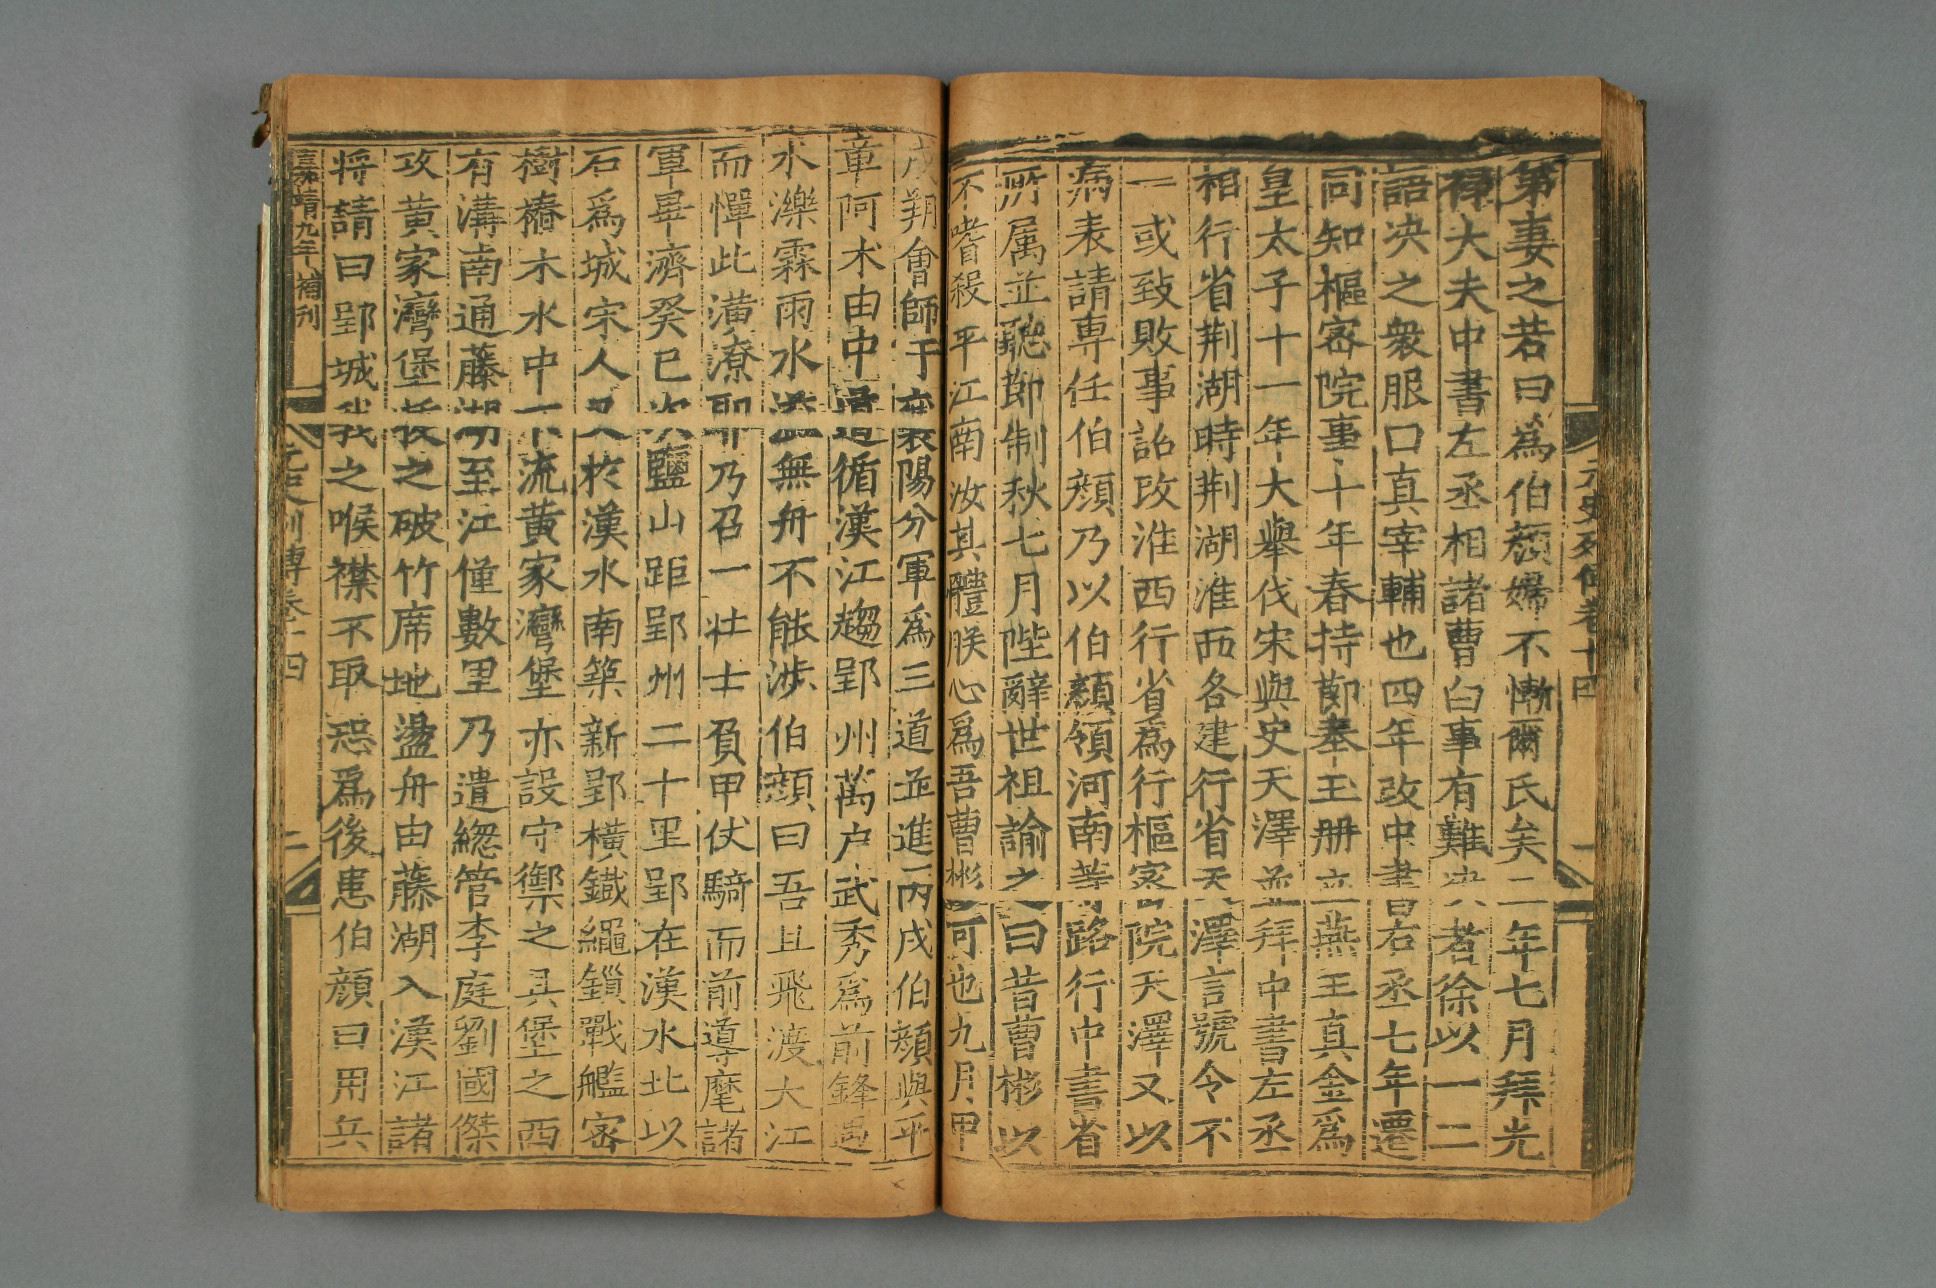 元史列傳卷十四 一
第妻之若曰為伯顔婦不慚爾氏矣二年七月拜光
禄大夫中書左丞相諸曹白事有難決者徐以一二
語决之衆服曰真宰輔也四年改中書右丞七年遷
同知樞密院事十年春持節奉玉册立燕王真金爲
皇太子十一年大舉伐宋與史天澤並拜中書左丞
相行省荆湖時荆湖淮西各建行省天澤言號令不
一或致敗事詔改淮西行省爲行樞密院天澤又以
病表請専任伯顔乃以伯顔領河南等路行中書省
所属並聽節制秋七月陛辭世祖諭之曰昔曹彬以
不嗜殺平江南汝其體朕心爲吾曹彬可也九月甲
戌朔會師于襄陽分軍爲三道並進丙戌伯顔與平
章阿术由中道循漢江趨郢州萬户武秀爲前鋒遇
水濼霖雨水溢無舟不能涉伯顔曰吾且飛渡大江
而憚此潢潦耶乃召一壯士負甲仗騎而前導麾諸
軍畢濟癸巳次鹽山距郢州二十里郢在漢水北以
石爲城宋人又於漢水南築新郢橫鐵繩鎖戰艦密
樹樁木水中下流黄家灣堡亦設守禦之具堡之西
有溝南通藤湖至江僅數里乃遣緫管李庭劉國傑
攻黄家灣堡拔之破竹席地盪舟由藤湖入漢江諸
将請曰郢城我之喉襟不取恐爲後患伯顔曰用兵
嘉靖九年補刊 元史列傳卷十四 二